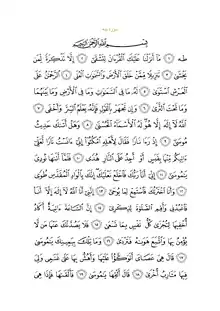 سورة طه
بِسْمِ اللَّهِ الرَّحْمَٰنِ الرَّحِيمِ
طه ١ مَا أَنزَلْنَا عَلَيْكَ الْقُرْءَانَ لِتَشْقَىٰ ٢ إِلَّا تَذْكِرَةً لِّمَن
يَخْشَىٰ ٣ تَنزِيلًا مِّمَّنْ خَلَقَ الْأَرْضَ وَالسَّمَٰوَٰتِ الْعُلَى ٤ الرَّحْمَٰنُ عَلَى
الْعَرْشِ اسْتَوَىٰ ٥ لَهُ مَا فِي السَّمَٰوَٰتِ وَمَا فِي الْأَرْضِ وَمَا بَيْنَهُمَا
وَمَا تَحْتَ الثَّرَىٰ ٦ وَإِن تَجْهَرْ بِالْقَوْلِ فَإِنَّهُ يَعْلَمُ السِّرَّ وَأَخْفَى ٧
اللَّهُ لَا إِلَٰهَ إِلَّا هُوَ لَهُ الْأَسْمَاءُ الْحُسْنَىٰ ٨ وَهَلْ أَتَىٰكَ حَدِيثُ
مُوسَىٰ ٩ إِذْ رَءَا نَارًا فَقَالَ لِأَهْلِهِ امْكُثُوا إِنِّي ءَانَسْتُ نَارًا لَّعَلِّي
ءَاتِيكُم مِّنْهَا بِقَبَسٍ أَوْ أَجِدُ عَلَى النَّارِ هُدًى ١٠ فَلَمَّا أَتَىٰهَا نُودِيَ
يَٰمُوسَىٰ ١١ إِنِّي أَنَا رَبُّكَ فَاخْلَعْ نَعْلَيْكَ إِنَّكَ بِالْوَادِ الْمُقَدَّسِ طُوًى
١٢ وَأَنَا اخْتَرْتُكَ فَاسْتَمِعْ لِمَا يُوحَىٰ ١٣ إِنَّنِي أَنَا اللَّهُ لَا إِلَٰهَ إِلَّا أَنَا
فَاعْبُدْنِي وَأَقِمِ الصَّلَوٰةَ لِذِكْرِي ١٤ إِنَّ السَّاعَةَ ءَاتِيَةٌ أَكَادُ
أُخْفِيهَا لِتُجْزَىٰ كُلُّ نَفْسٍ بِمَا تَسْعَىٰ ١٥ فَلَا يَصُدَّنَّكَ عَنْهَا مَن لَّا
يُؤْمِنُ بِهَا وَاتَّبَعَ هَوَىٰهُ فَتَرْدَىٰ ١٦ وَمَا تِلْكَ بِيَمِينِكَ يَٰمُوسَىٰ ١٧
قَالَ هِيَ عَصَايَ أَتَوَكَّؤُا عَلَيْهَا وَأَهُشُّ بِهَا عَلَىٰ غَنَمِي وَلِيَ
فِيهَا مَـَٔارِبُ أُخْرَىٰ ١٨ قَالَ أَلْقِهَا يَٰمُوسَىٰ ١٩ فَأَلْقَىٰهَا فَإِذَا هِيَ